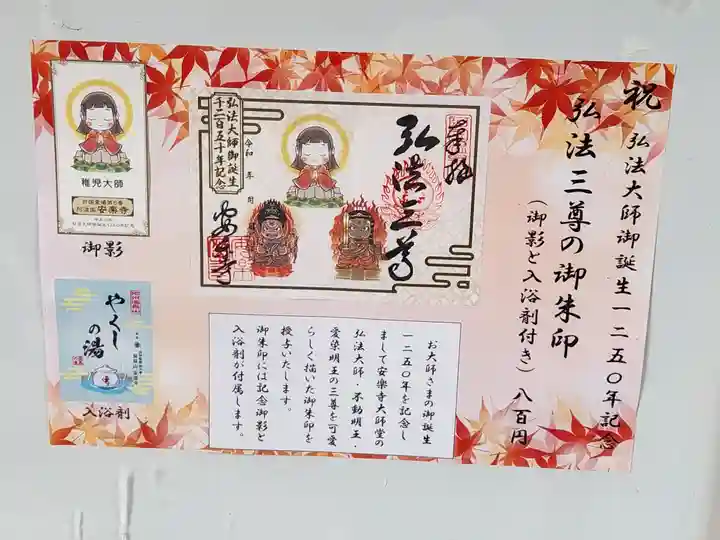 祝 弘法大師御誕生一二五〇年記念
弘法三尊の御朱印
（御影と入浴剤付き）八百円
奉拝
弘法三尊
令和 年 月
安楽寺
弘法大師御誕生
千二百五十年記念
稚児大師
四国霊場第6番
阿波国 安楽寺
御影
やくしの湯
入浴剤
お大師さまの御誕生
一二五〇年を記念し
まして安楽寺大師堂の
弘法大師・不動明王・
愛染明王の三尊を可愛
らしく描いた御朱印を
授与いたします。
御朱印には記念御影と
入浴剤が付属します。